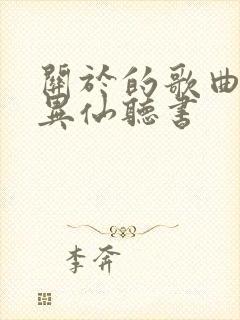 關於的歌曲
異仙聽書
李奔